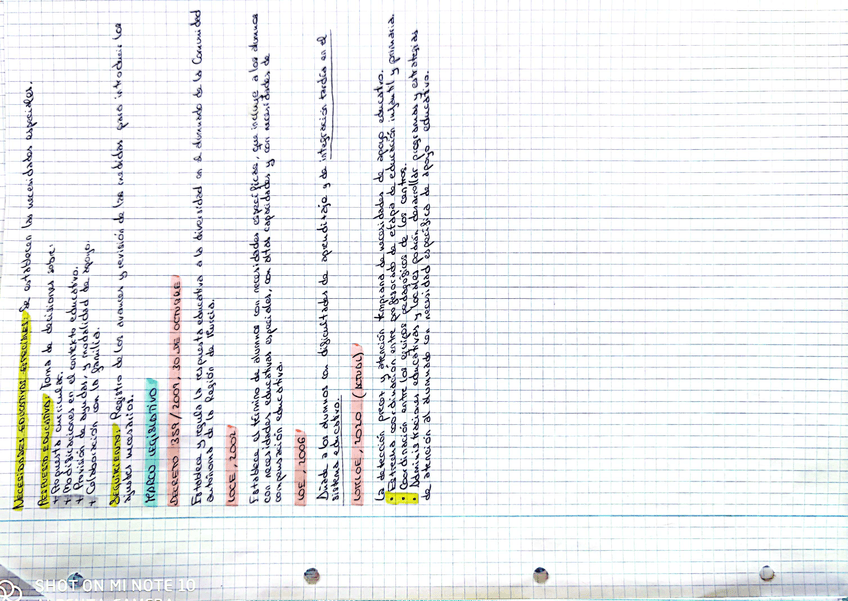 NECESIDADES EDUCATIVAS ESPECIALES: Se establecen las necesidades especiales.
RESPUESTA EDUCATIVA: Toma de decisiones sobre:
+ Propuesta curricular.
+ Modificaciones en el contexto educativo.
+ Provisión de ayudas, y modalidad de apoyo.
+ Colaboración con la familia.
SEGUIMIENTO: Registro de los avances y revisión de las medidas para introducir los
ajustes necesarios.
MARCO LEGISLATIVO
DECRETO 359/2009, 30 DE OCTUBRE
Establece y regula la respuesta educativa a la diversidad en el alumnado de la Comunidad
autónoma de la Región de Murcia.
LOCE, 2002
Establece el término de alumnos con necesidades específicas, que incluye a los alumnos
con necesidades educativas especiales, con altas capacidades y con necesidades de
compensación educativa.
LOE, 2006
Añade a los alumnos con dificultades de aprendizaje y de integración tardía en el
sistema educativo.
LOMLOE, 2020 (ACTUAL)
La detección precoz y atención temprana de necesidades de apoyo educativo.
• Estrecha coordinación entre profesorado de etapa de educación infantil y primaria.
• Coordinación entre los equipos pedagógicos de los centros.
• Administraciones educativas y locales podrán desarrollar programas y estrategias
de atención al alumnado con necesidad específica de apoyo educativo.
SHOT ON MI NOTE 10